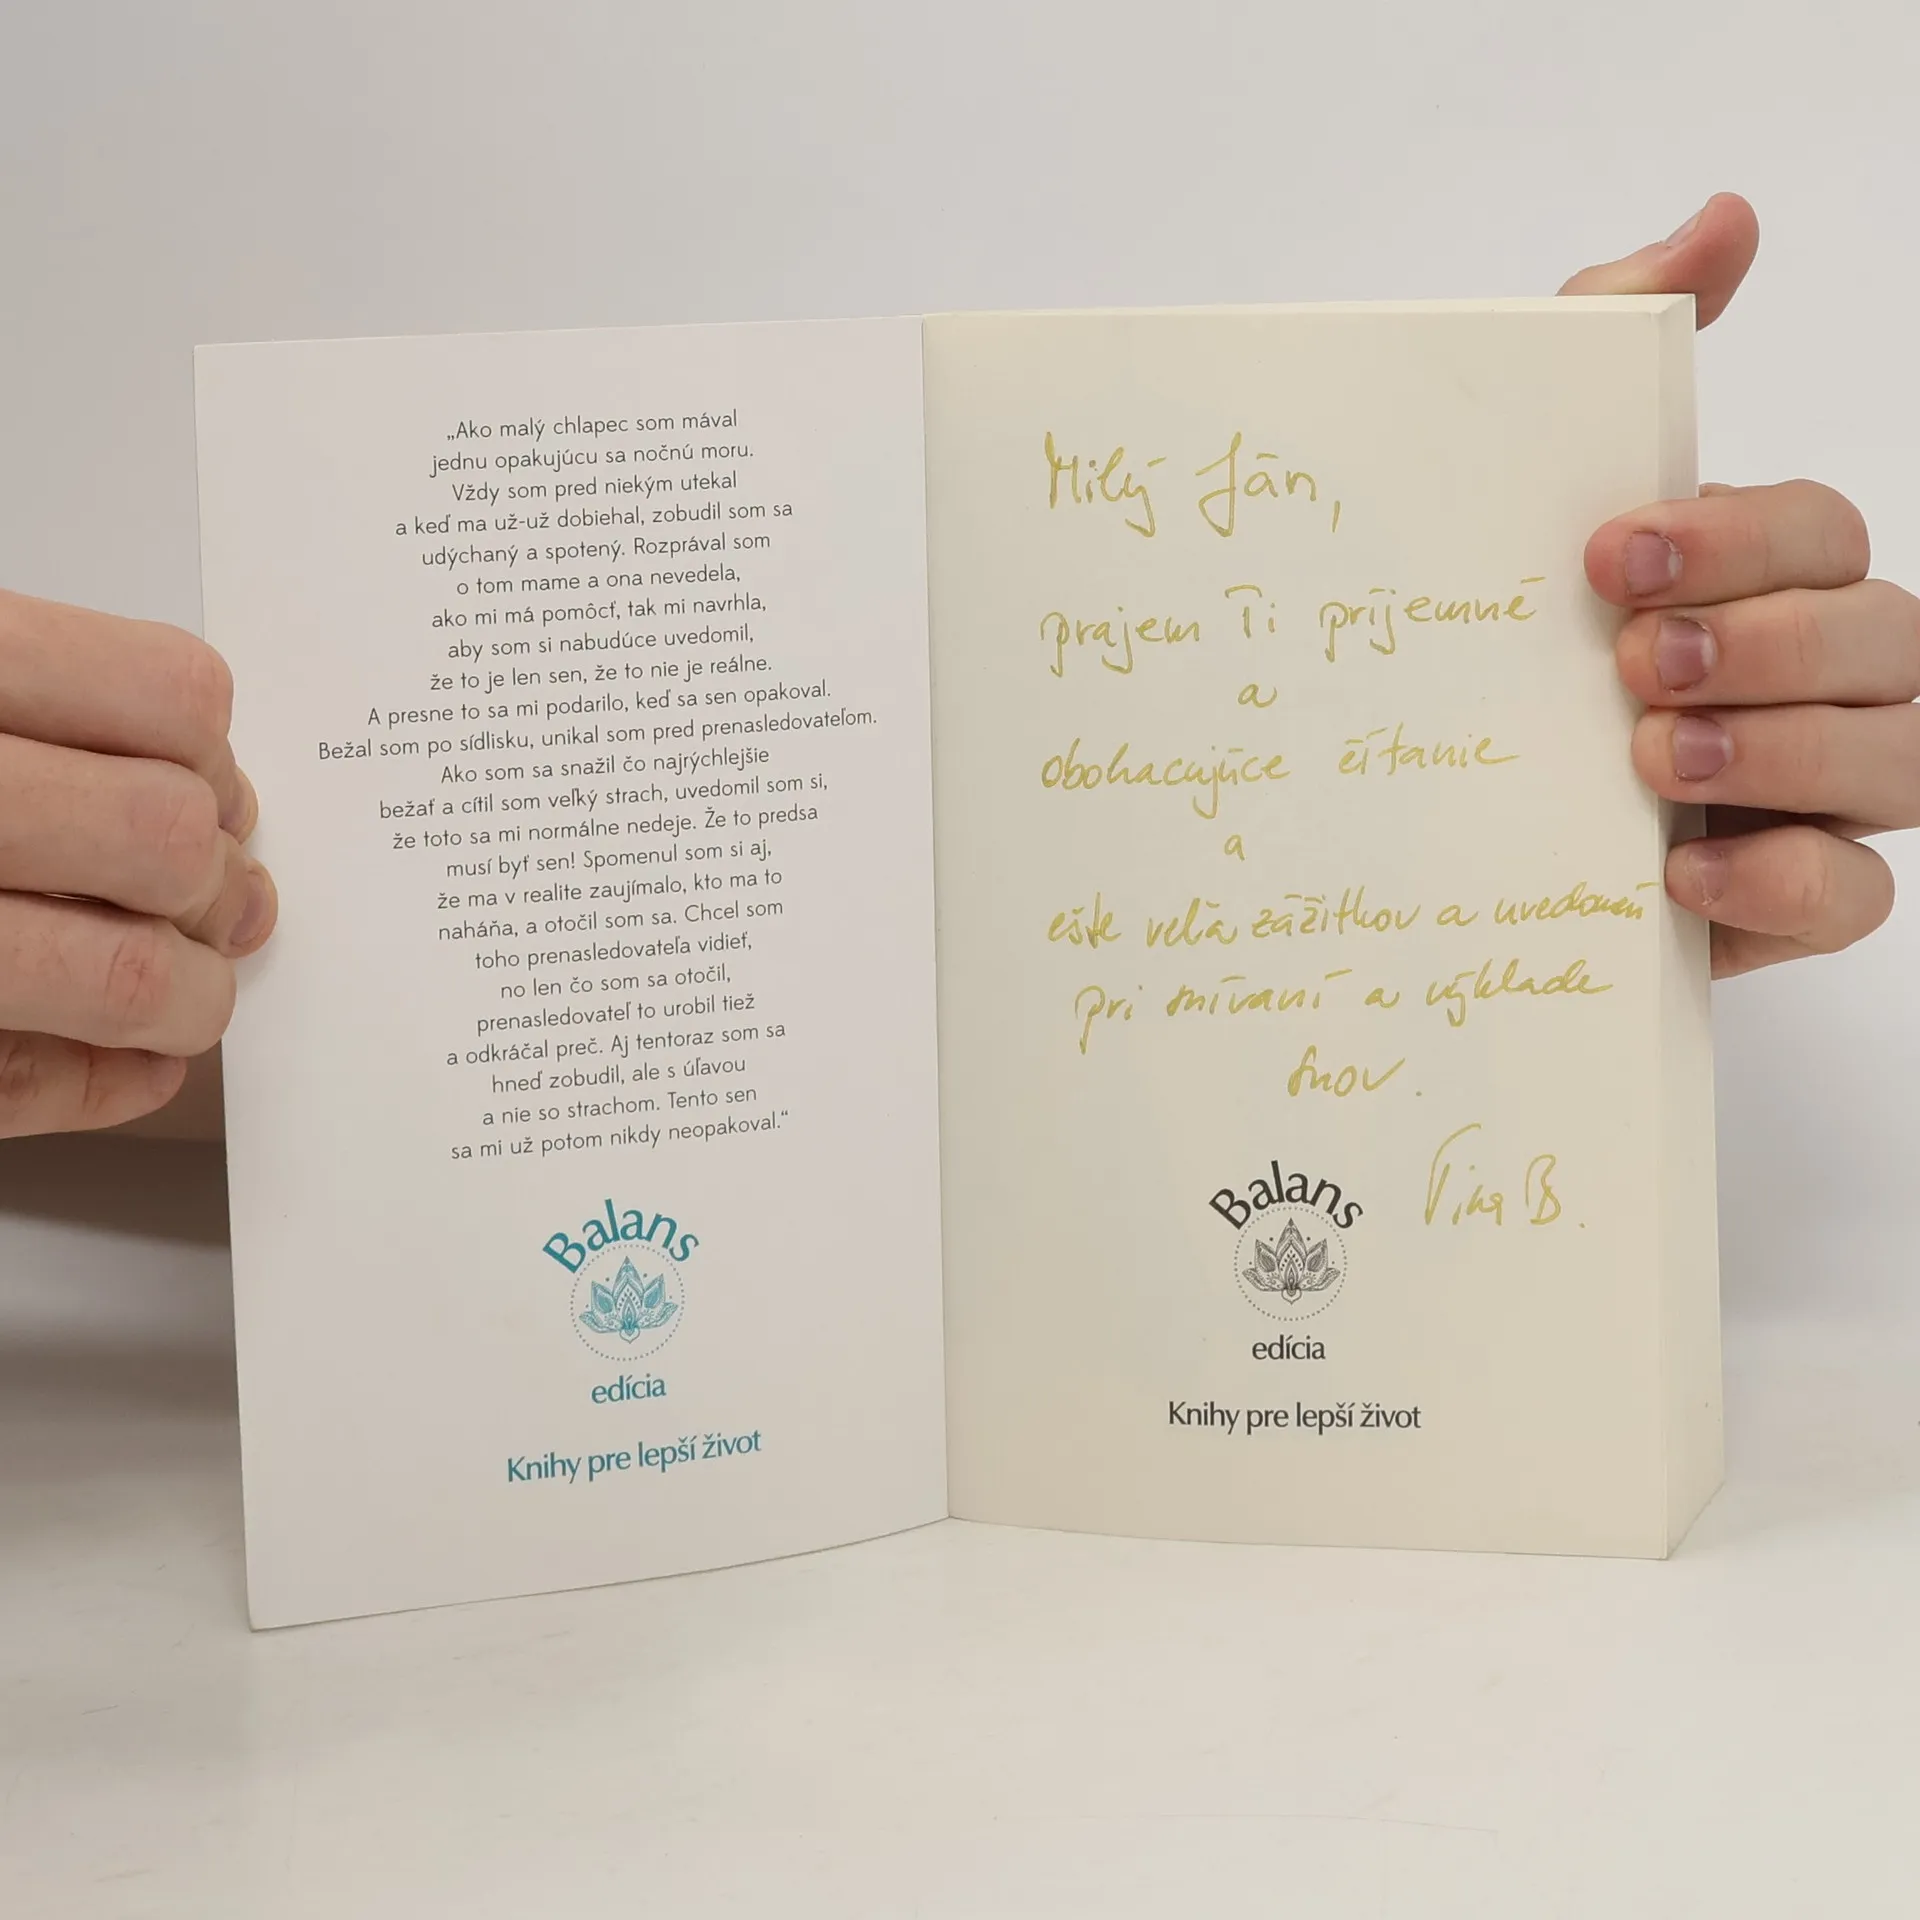 „Ako malý chlapec som mával
jednu opakujúcu sa nočnú moru.
Vždy som pred niekým utekal
a keď ma už-už dobiehal, zobudil som sa
udýchaný a spotený. Rozprával som
o tom mame a ona nevedela,
ako mi má pomôcť, tak mi navrhla,
aby som si nabudúce uvedomil,
že to je len sen, že to nie je reálne.
A presne to sa mi podarilo, keď sa sen opakoval.
Bežal som po sídlisku, unikal som pred prenasledovateľom.
Ako som sa snažil čo najrýchlejšie
bežať a cítil som veľký strach, uvedomil som si,
že toto sa mi normálne nedeje. Že to predsa
musí byť sen! Spomenul som si aj,
že ma v realite zaujímalo, kto ma to
naháňa, a otočil som sa. Chcel som
toho prenasledovateľa vidieť,
no len čo som sa otočil,
prenasledovateľ to urobil tiež
a odkráčal preč. Aj tentoraz som sa
hneď zobudil, ale s úľavou
a nie so strachom. Tento sen
sa mi už potom nikdy neopakoval.“
Balans
edícia
Knihy pre lepší život
Milý Ján,
prajem Ti príjemné
a
obohacujúce čítanie
a
ešte veľa zážitkov a uvedomení
pri snívaní a výklade
snov.
Tina B.
Balans
edícia
Knihy pre lepší život